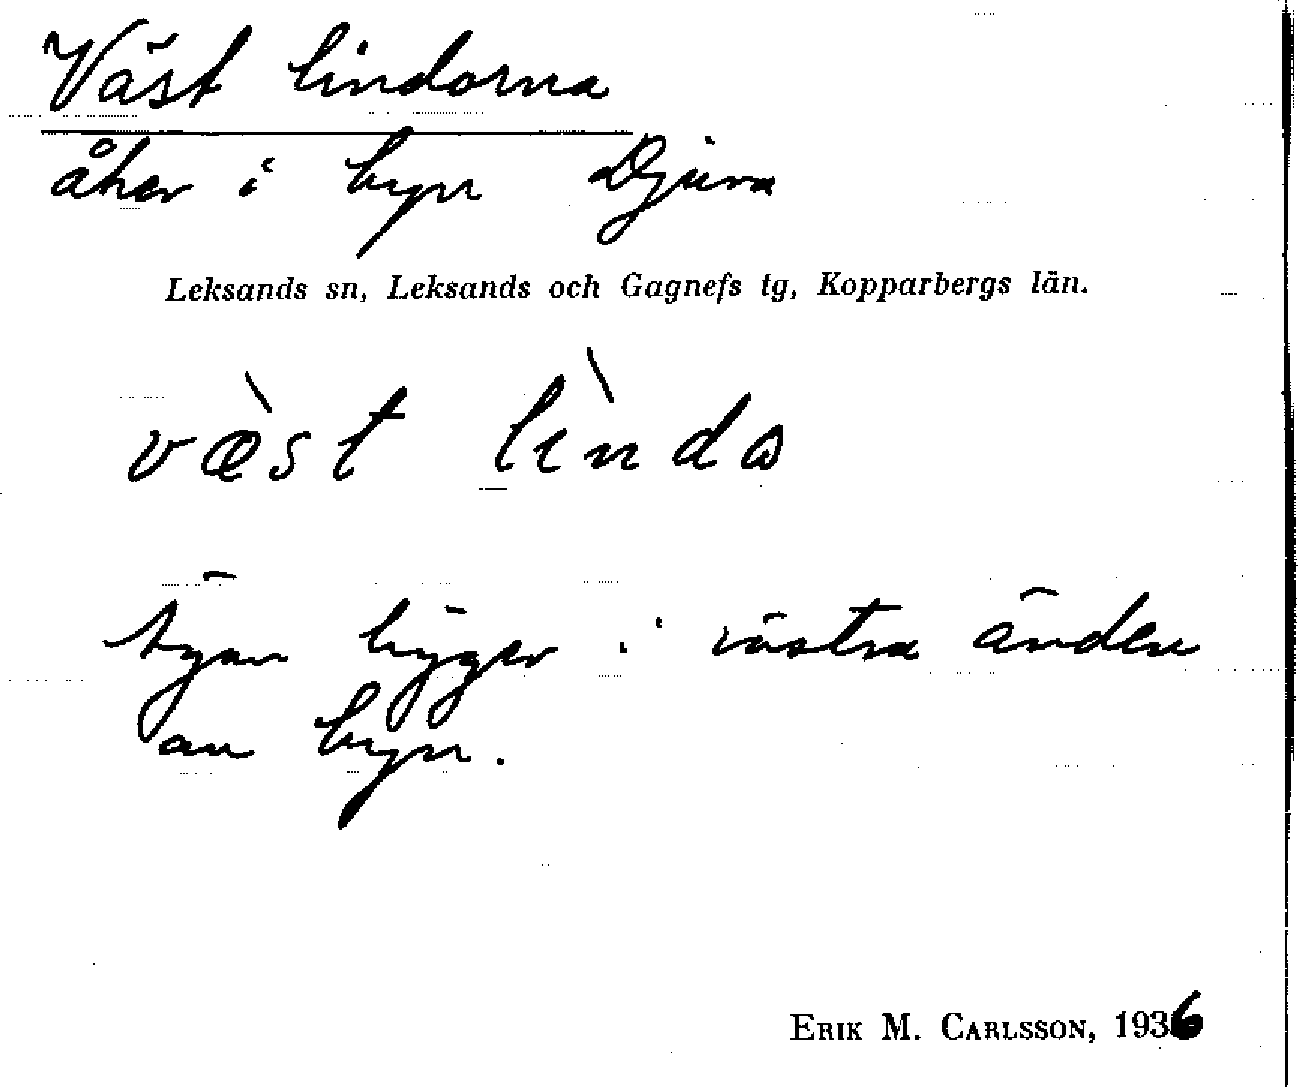 Väst lindorna
åker i byn Djura
Leksands sn, Leksands och Gagnefs tg, Kopparbergs län.
væ̀st lìnda
ligger i västra änden
av byn.
ERIK M. CARLSSON, 1936